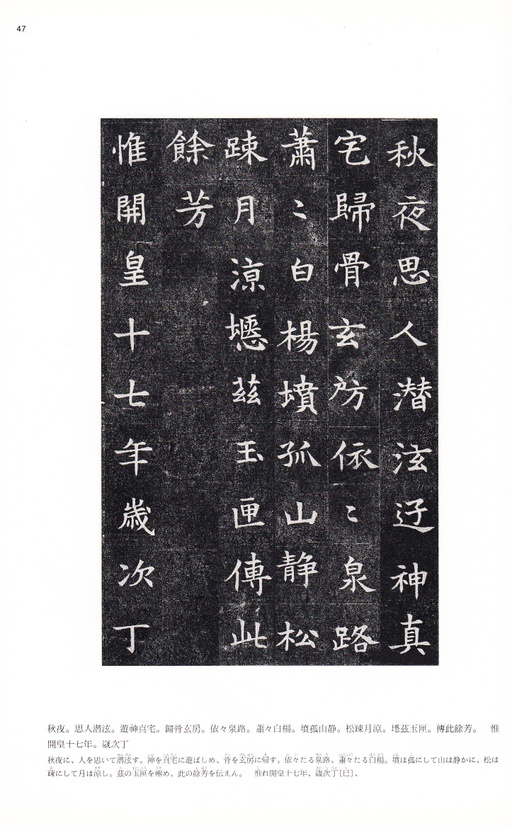 47
秋夜思人潜泫遊神真
宅歸骨玄房依〻泉路
蕭〻白楊墳孤山静松
踈月涼茲玉匣傳此
餘芳
惟開皇十七年歳次丁
秋夜。思人潜泫。遊神真宅。歸骨玄房。依々泉路。蕭々白楊。墳孤山静。松踈月涼。茲玉匣。傳此餘芳。　惟
開皇十七年。歳次丁
秋夜に、人を思いて潜泫す。神を真宅に遊ばしめ、骨を玄房に帰す。依々たる泉路、蕭々たる白楊。墳は孤にして山は静かに、松は
踈にして月は涼し。茲の玉匣をめ、此の餘芳を伝えん。　惟れ開皇十七年、歳次丁〔巳〕、